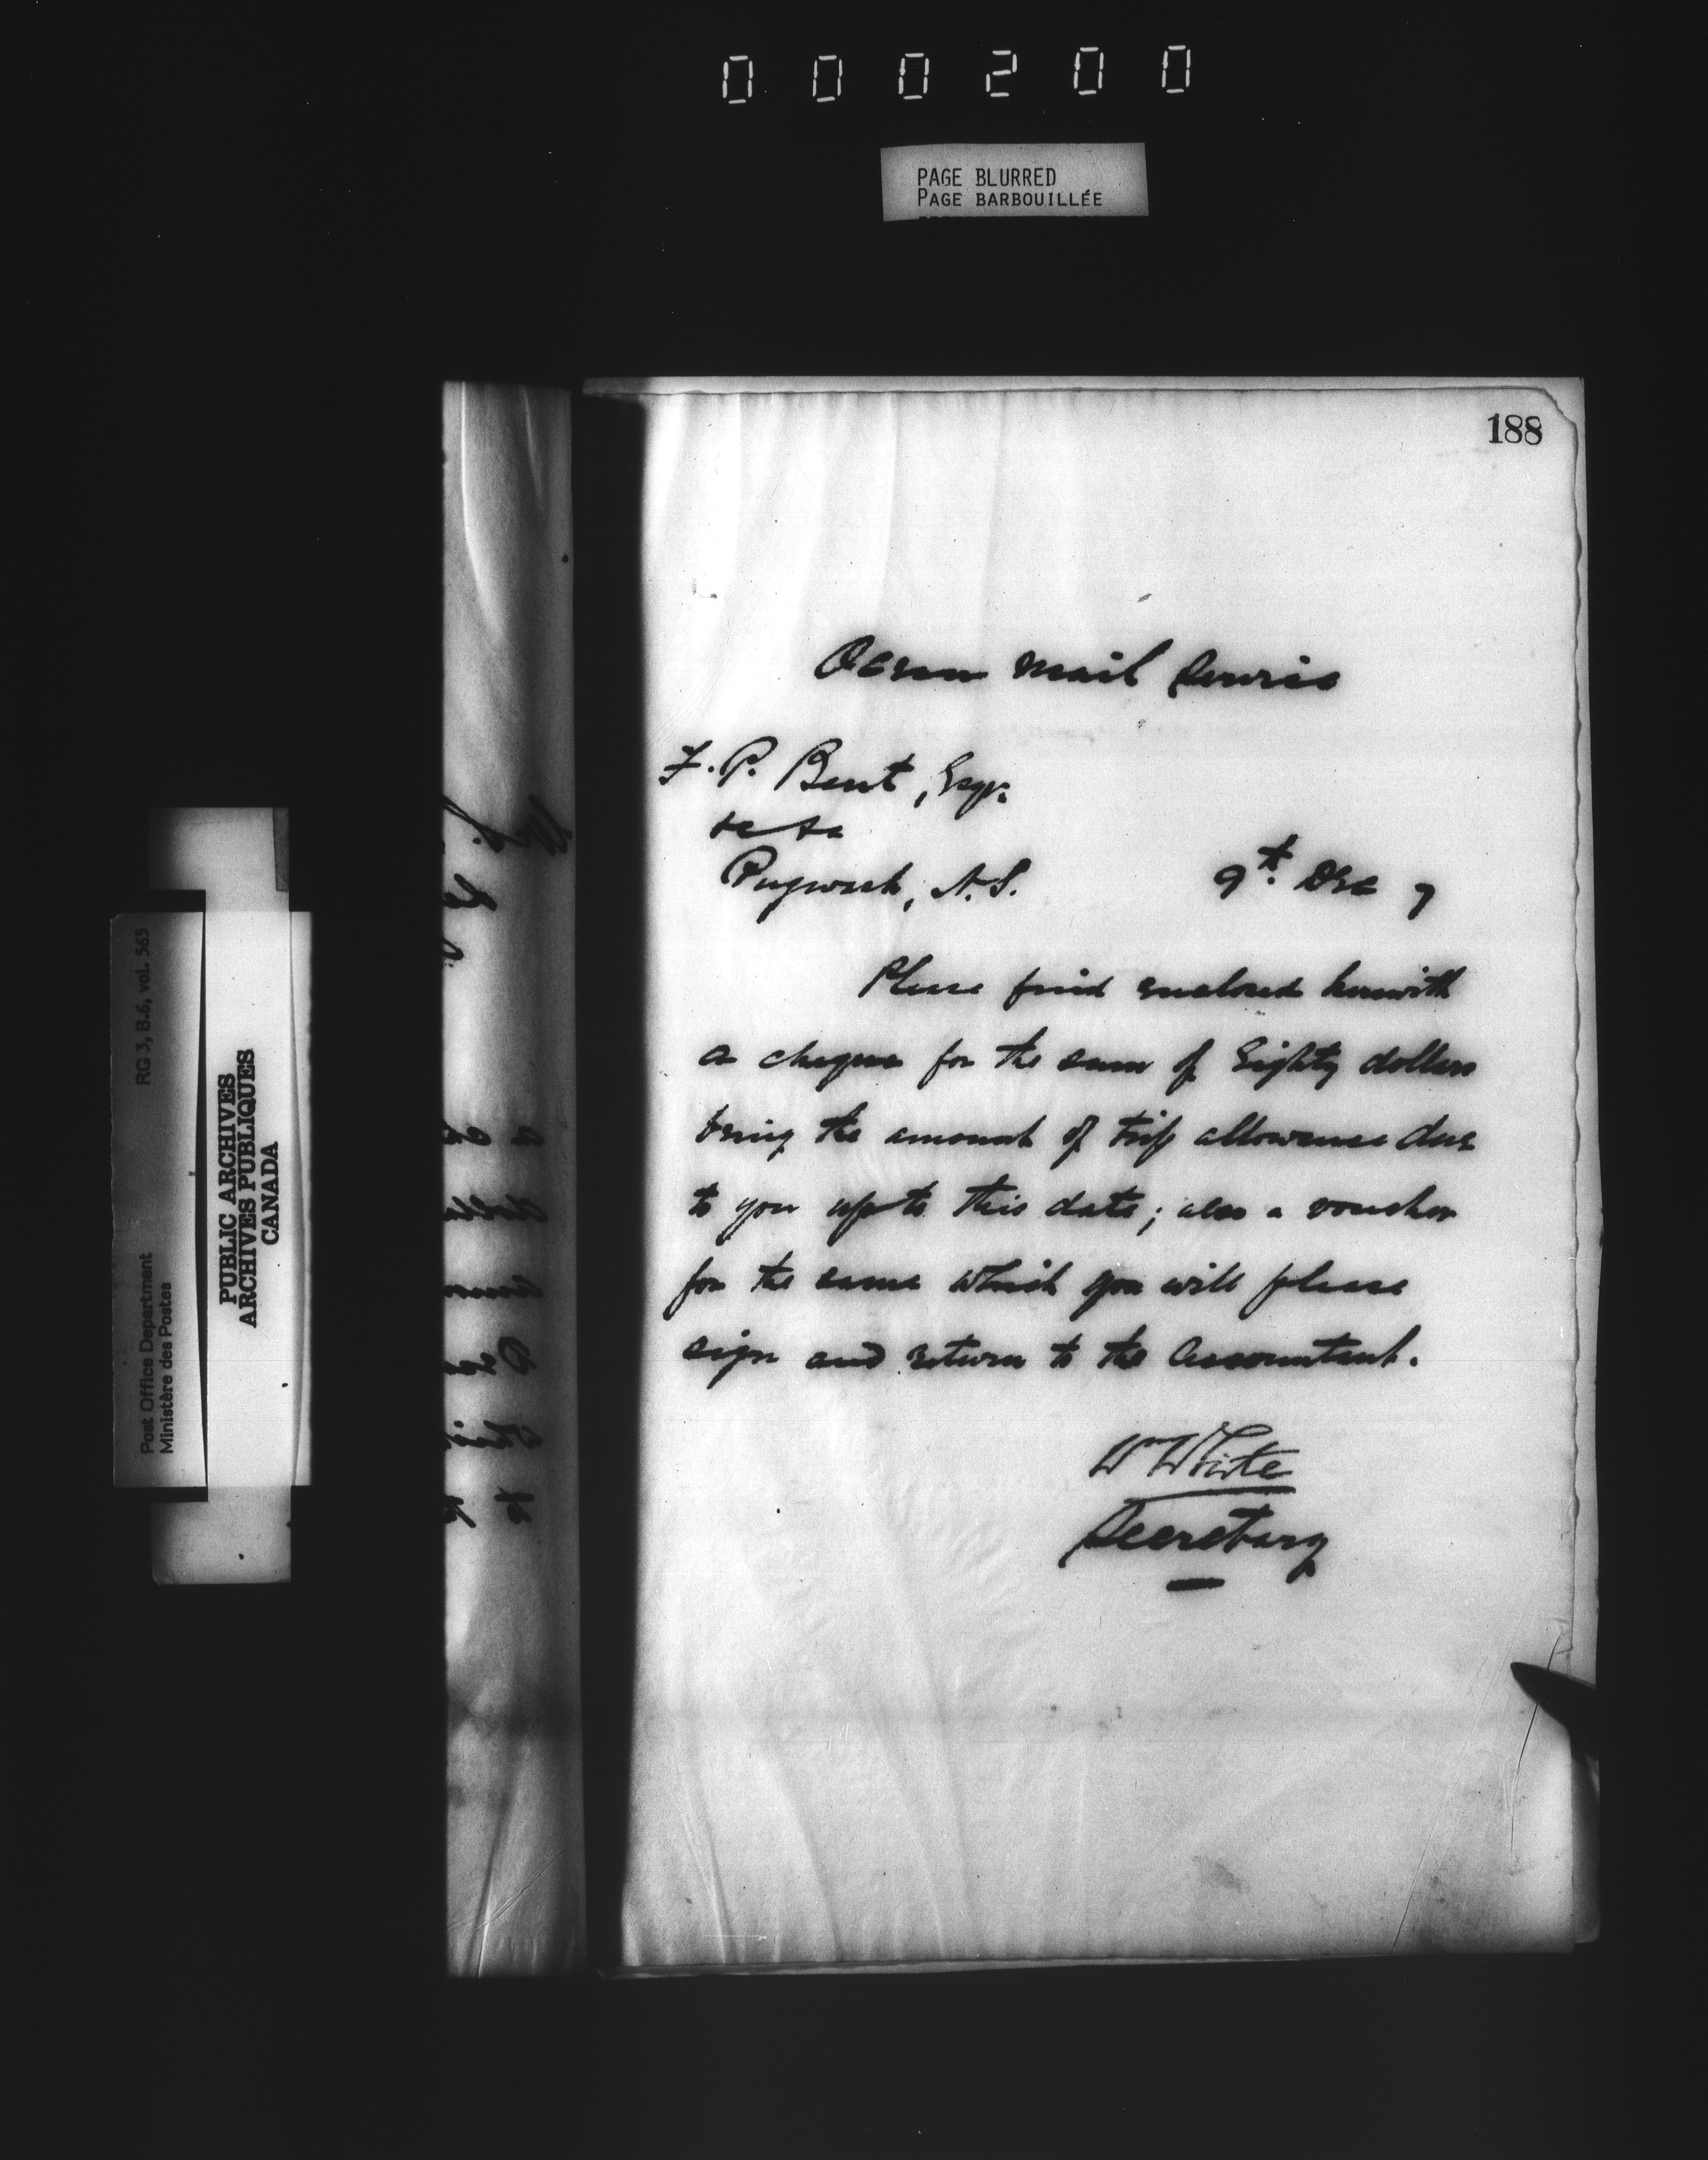 000200
PAGE BLURRED
PAGE BARBOUILLÉE
188
Ocean Mail Service
F. P. Bent, Esqr.
&c &c
Pugwash, N.S.
9th. Dec 7
Please find enclosed herewith
a cheque for the sum of Eighty dollars
being the amount of trip allowance due
to you up to this date; also a voucher
for the same which you will please
sign and return to the Accountant.
W White
Secretary
Post Office Department
Ministère des Postes
RG 3, B.6, vol. 565
PUBLIC ARCHIVES
ARCHIVES PUBLIQUES
CANADA